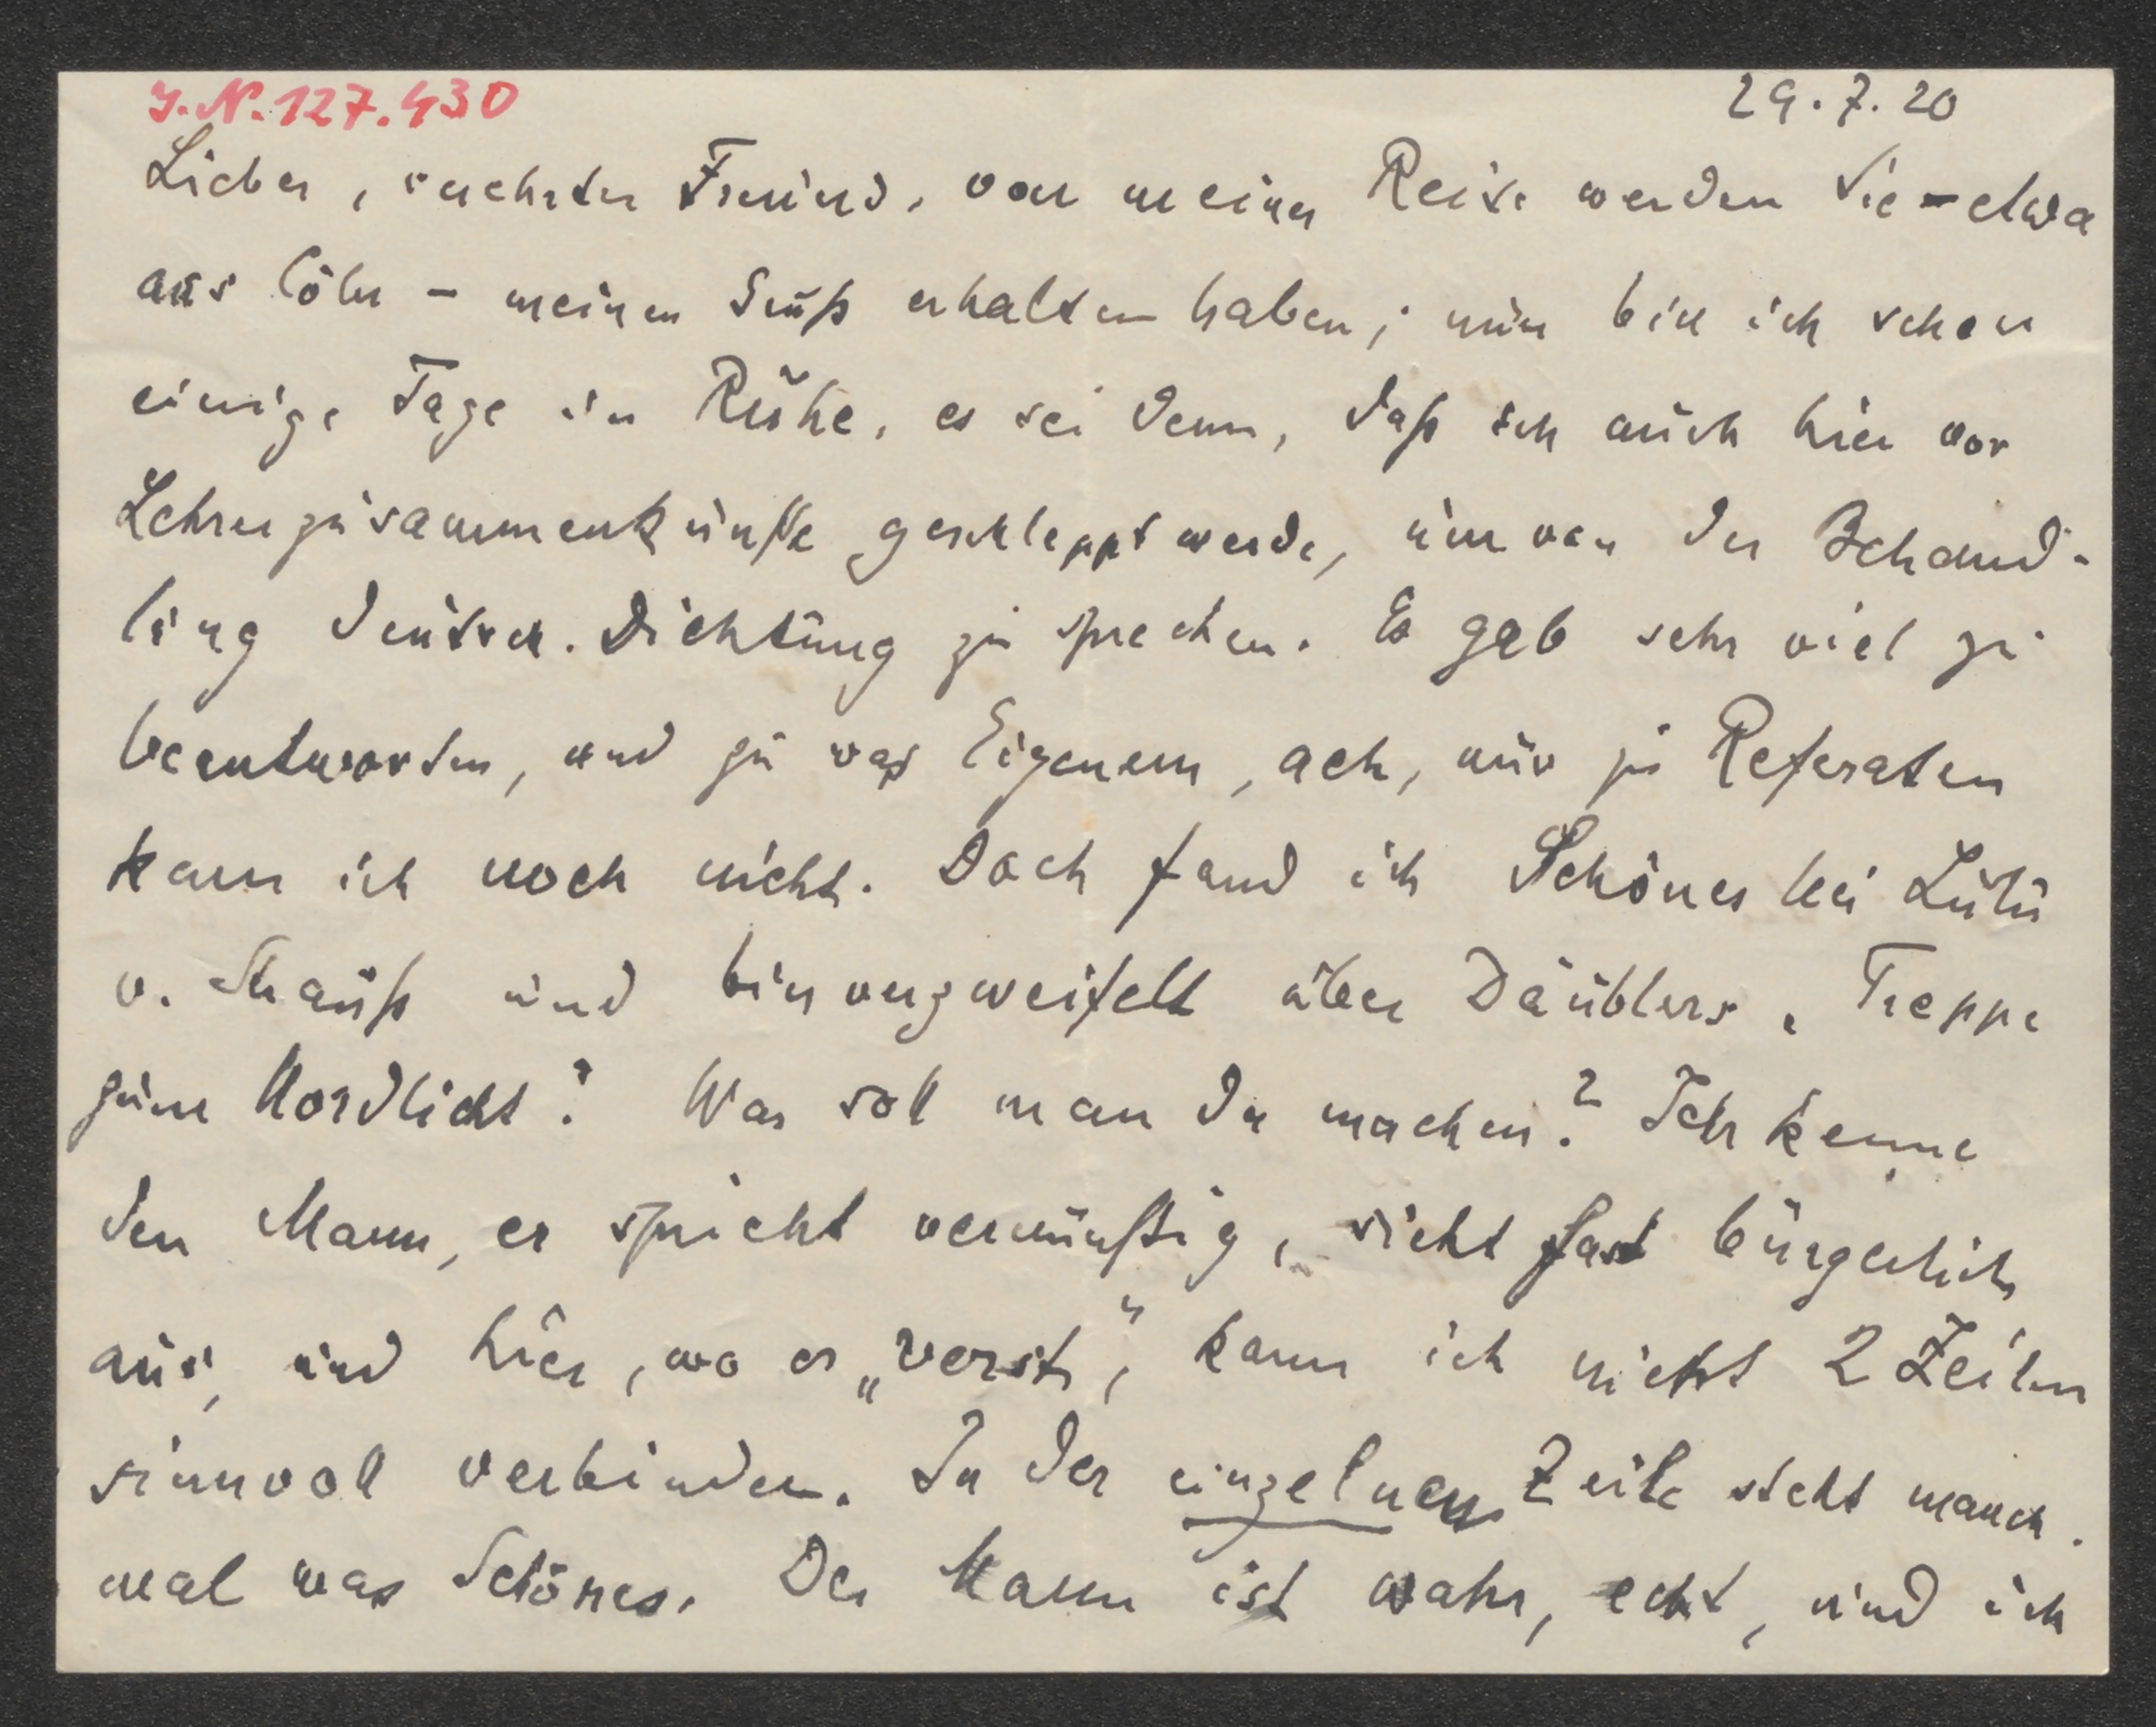 J.N. 127.430
29.7.20
Lieber, verehrter Freund, von meiner Reise werden Sie – etwa
aus Cöln – meinen Gruß erhalten haben; nun bin ich schon
einige Tage in Ruhe, es sei denn, daß ich auch hier vor
Lehrerzusammenkünfte geschleppt werde, um von der Behand-
lung deutsch. Dichtung zu sprechen. Es gab sehr viel zu
beantworten, und zu was Eigenem, ach, nur zu Referaten
kam ich noch nicht. Doch fand ich Schönes bei Lulu
v. Strauß und bin verzweifelt über Däublers „Treppe
zum Nordlicht“. Was soll man da machen? Ich kenne
den Mann, er spricht vernünftig, sieht fast bürgerlich
aus, und hier, wo er „verst“, kann ich nicht 2 Zeilen
sinnvoll verbinden. In der einzelnen Zeile steht manch-
mal was Schönes. Der Mann ist wahr, echt, und ich